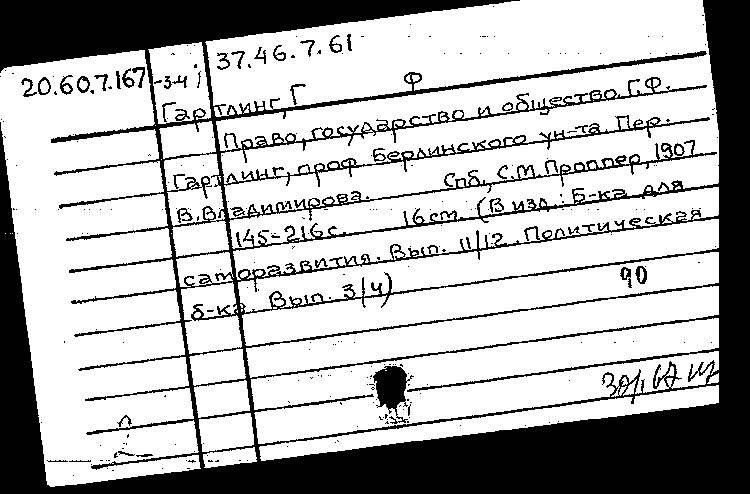 37.46.7.61
20.60.7.167-3-4;
Гартлинг, Г Ф
Право, государство и общество. Г.Ф.
Гартлинг, проф Берлинского ун-та. Пер.
В.Владимирова. Спб., С.М.Проппер, 1907
145-216с. 16см. (В изд.: Б-ка для
саморазвития. Вып. 11/12. Политическая
б-ка. Вып. 3/4)
90